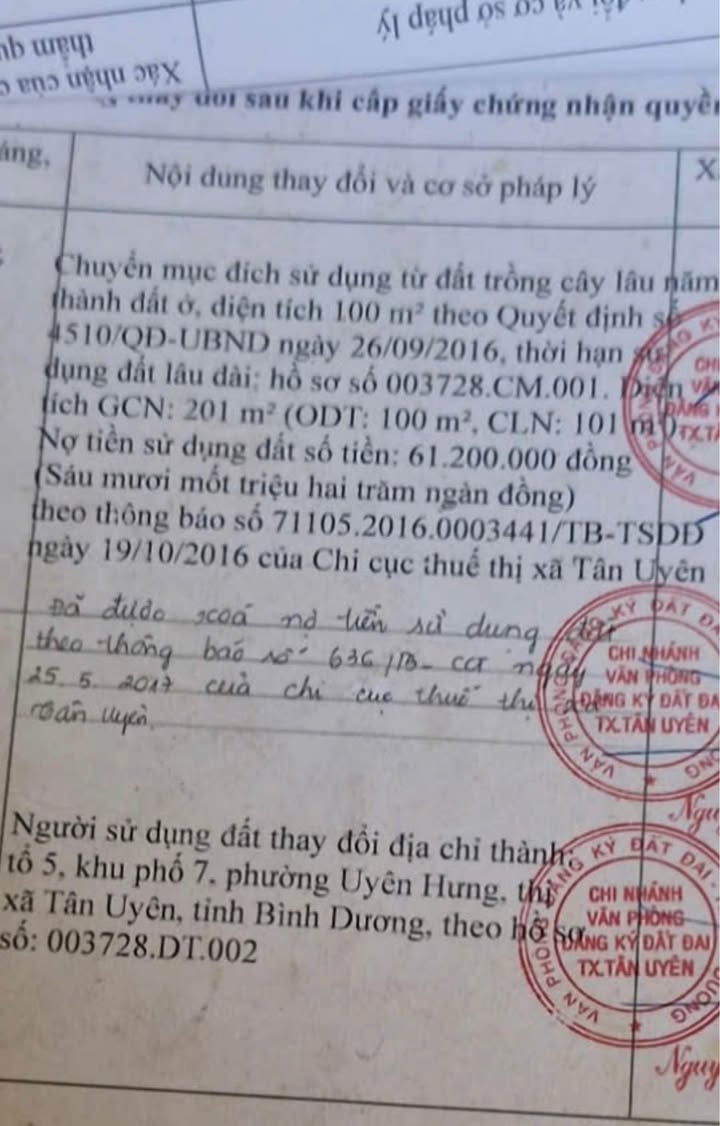 đổi và cơ sở pháp lý
Xác nhận của c
thẩm qu
thay đổi sau khi cấp giấy chứng nhận quyền
áng,
Nội dung thay đổi và cơ sở pháp lý
X
Chuyển mục đích sử dụng từ đất trồng cây lâu năm
thành đất ở, diện tích 100 m² theo Quyết định số
4510/QĐ-UBND ngày 26/09/2016, thời hạn sử
dụng đất lâu dài; hồ sơ số 003728.CM.001. Diện
tích GCN: 201 m² (ODT: 100 m², CLN: 101 m²)
Nợ tiền sử dụng đất số tiền: 61.200.000 đồng
(Sáu mươi mốt triệu hai trăm ngàn đồng)
theo thông báo số 71105.2016.0003441/TB-TSDĐ
ngày 19/10/2016 của Chi cục thuế thị xã Tân Uyên
Đã được xoá nợ tiền sử dụng đất
theo thông báo số 636/TB-CCT ngày
25.5.2017 của chi cục thuế thị xã
Tân Uyên.
CHI NHÁNH
VĂN PHÒNG
ĐĂNG KÝ ĐẤT ĐA
TX.TÂN UYÊN
Người sử dụng đất thay đổi địa chỉ thành:
tổ 5, khu phố 7, phường Uyên Hưng, thị
xã Tân Uyên, tỉnh Bình Dương, theo hồ sơ
số: 003728.DT.002
VĂN PHÒNG ĐĂNG KÝ ĐẤT ĐAI
CHI NHÁNH
VĂN PHÒNG
ĐĂNG KÝ ĐẤT ĐAI
TX.TÂN UYÊN
Nguy